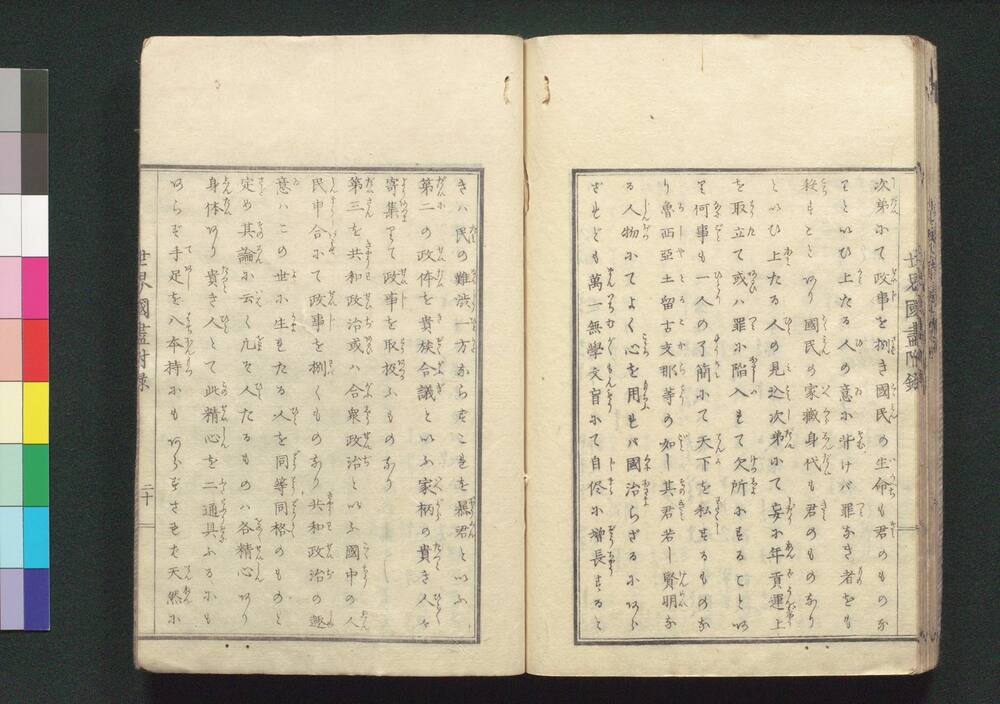 次第にて政事を捌き國民の生命も君のものな
りといひ上たる人の意に背けバ罪なき者をも
殺すことあり國民の家藏身代も君のものなり
といひ上たる人の見込次第にて妄に年貢運上
を取立て或ハ罪に陥入れて欠所にすることあ
り何事も一人の了簡にて天下を私するものな
り魯西亞土留古支那等の如し其君若し賢明な
る人物にてよく心を用れバ國治らざるにあら
ざれども萬一無學文盲にて自侭に増長すると
世界國盡附録
きハ民の難渋一方からずこれを暴君といふ
第二の政体を貴族合議といふ家柄の貴き人々
寄集りて政事を取扱ふものなり
第三を共和政治或ハ合衆政治といふ國中の人
民申合にて政事を捌くものなり共和政治の趣
意ハこの世に生れたる人を同等同格のものと
定め其論に云く凡そ人たるものハ各精心あり
身体あり貴き人とて此精心を二通具ふるにも
あらず手足を八本持にもあらずされば天然に
世界國盡附録
二十